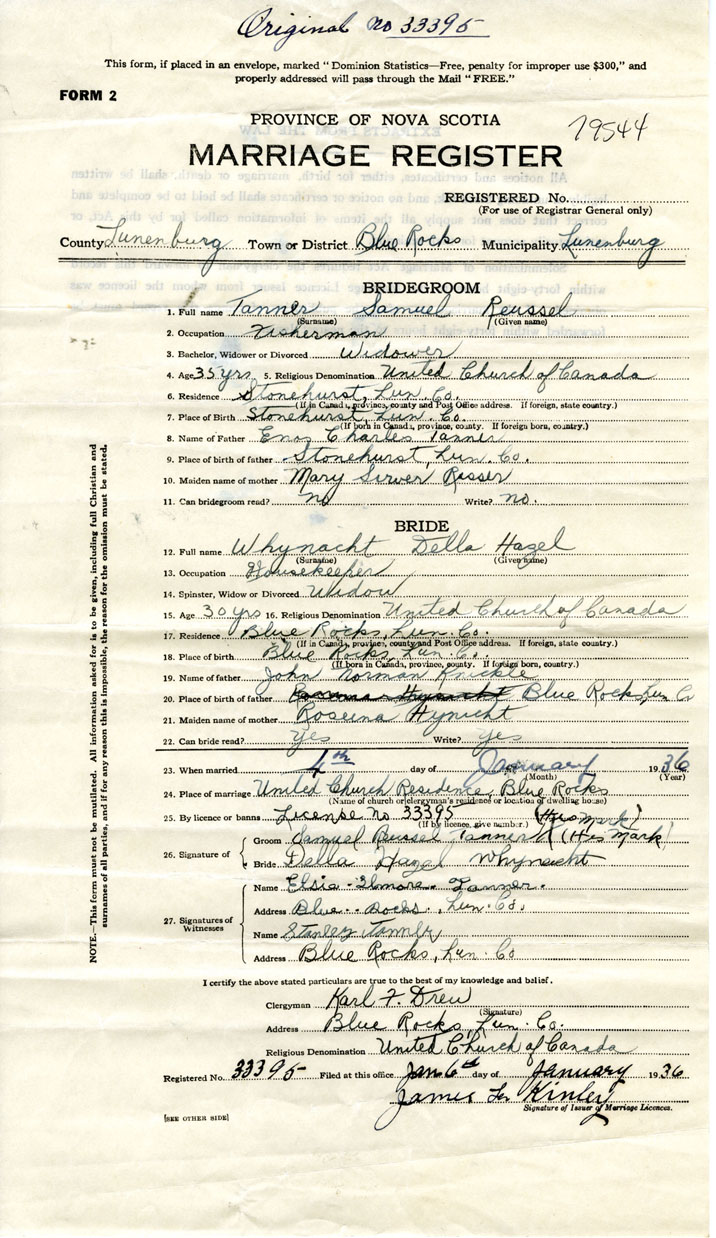 Original no 33395
This form, if placed in an envelope, marked "Dominion Statistics—Free, penalty for improper use $300," and
properly addressed will pass through the Mail "FREE."
FORM 2
PROVINCE OF NOVA SCOTIA
79544
MARRIAGE REGISTER
REGISTERED No.
(For use of Registrar General only)
County Lunenburg Town or District Blue Rocks Municipality Lunenburg
BRIDEGROOM
1. Full name Tanner Samuel Reussel
(Surname) (Given name)
2. Occupation Fisherman
3. Bachelor, Widower or Divorced Widower
4. Age 35 yrs 5. Religious Denomination United Church of Canada
6. Residence Stonehurst, Lun. Co.
(If in Canada, province, county and Post Office address. If foreign, state country.)
7. Place of Birth Stonehurst, Lun. Co.
(If born in Canada, province, county. If foreign born, country.)
8. Name of Father Enos Charles Tanner
9. Place of birth of father Stonehurst, Lun. Co.
10. Maiden name of mother Mary
11. Can bridegroom read? no Write? no.
BRIDE
12. Full name Whynacht Della Hazel
(Surname) (Given name)
13. Occupation Housekeeper
14. Spinster, Widow or Divorced Widow
15. Age 30 yrs 16. Religious Denomination United Church of Canada
17. Residence Blue Rocks, Lun. Co.
(If in Canada, province, county and Post Office address. If foreign, state country.)
18. Place of birth Blue Rocks, Lun. Co.
(If born in Canada, province, county. If foreign born, country.)
19. Name of father John Norman Knickle
20. Place of birth of father Blue Rocks, Lun Co
21. Maiden name of mother Roseina Hynicht
22. Can bride read? yes Write? yes
23. When married 4th day of January 1936
(Month) (Year)
24. Place of marriage United Church Residence, Blue Rocks
(Name of church or clergyman's residence or location of dwelling house)
25. By licence or banns License no 33395 (His mark)
(If by licence, give number.)
26. Signature of
Groom Samuel Reussel Tanner X (His Mark)
Bride Della Hazel Whynacht
27. Signatures of Witnesses
Name Elsie Elmore Tanner.
Address Blue Rocks, Lun. Co.
Name Stanley Tanner
Address Blue Rocks, Lun. Co
I certify the above stated particulars are true to the best of my knowledge and belief.
Clergyman Karl F. Drew
(Signature)
Address Blue Rocks, Lun. Co.
Religious Denomination United Church of Canada
Registered No. 33395 Filed at this office Jan 6th day of January 1936
James Kinley
Signature of Issuer of Marriage Licences.
[SEE OTHER SIDE]
NOTE.—This form must not be mutilated. All information asked for is to be given, including full Christian and
surnames of all parties, and if for any reason this is impossible, the reason for the omission must be stated.